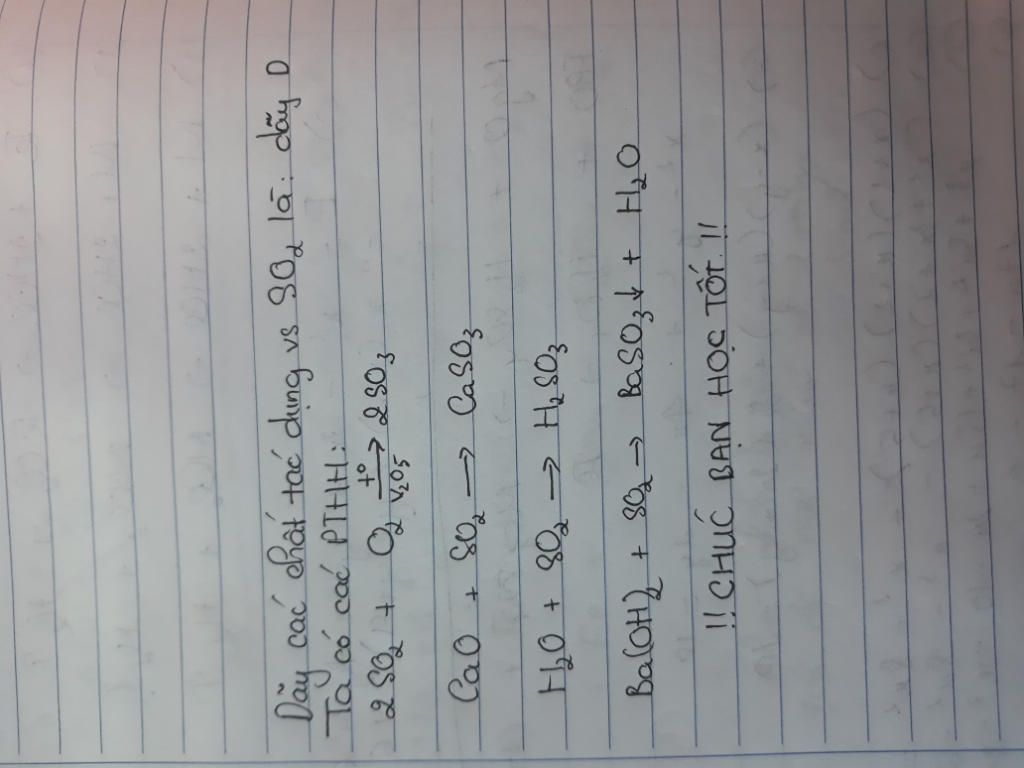 Dãy các chất tác dụng vs SO₂ là: dãy D
Ta có các PTHH:
2SO₂ + O₂ –t°/V₂O₅→ 2SO₃
CaO + SO₂ → CaSO₃
H₂O + SO₂ → H₂SO₃
Ba(OH)₂ + SO₂ → BaSO₃↓ + H₂O
!! CHÚC BẠN HỌC TỐT !!